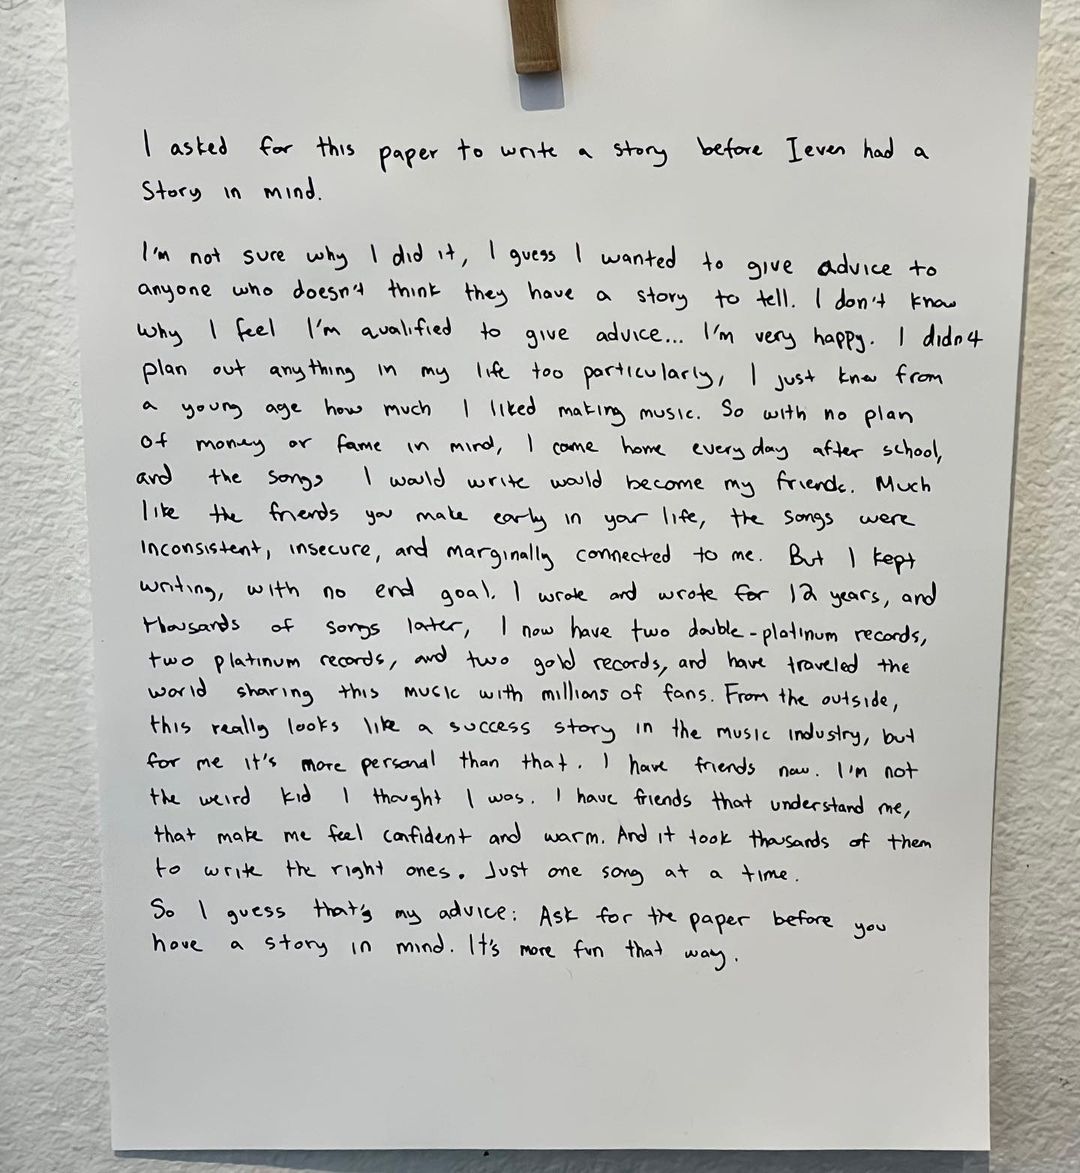 I asked for this paper to write a story before I even had a
story in mind.
I'm not sure why I did it, I guess I wanted to give advice to
anyone who doesn't think they have a story to tell. I don't know
why I feel I'm qualified to give advice... I'm very happy. I didn't
plan out anything in my life too particularly, I just knew from
a young age how much I liked making music. So with no plan
of money or fame in mind, I came home every day after school,
and the songs I would write would become my friends. Much
like the friends you make early in your life, the songs were
inconsistent, insecure, and marginally connected to me. But I kept
writing, with no end goal. I wrote and wrote for 12 years, and
thousands of songs later, I now have two double-platinum records,
two platinum records, and two gold records, and have traveled the
world sharing this music with millions of fans. From the outside,
this really looks like a success story in the music industry, but
for me it's more personal than that. I have friends now. I'm not
the weird kid I thought I was. I have friends that understand me,
that make me feel confident and warm. And it took thousands of them
to write the right ones. Just one song at a time.
So I guess that's my advice: Ask for the paper before you
have a story in mind. It's more fun that way.